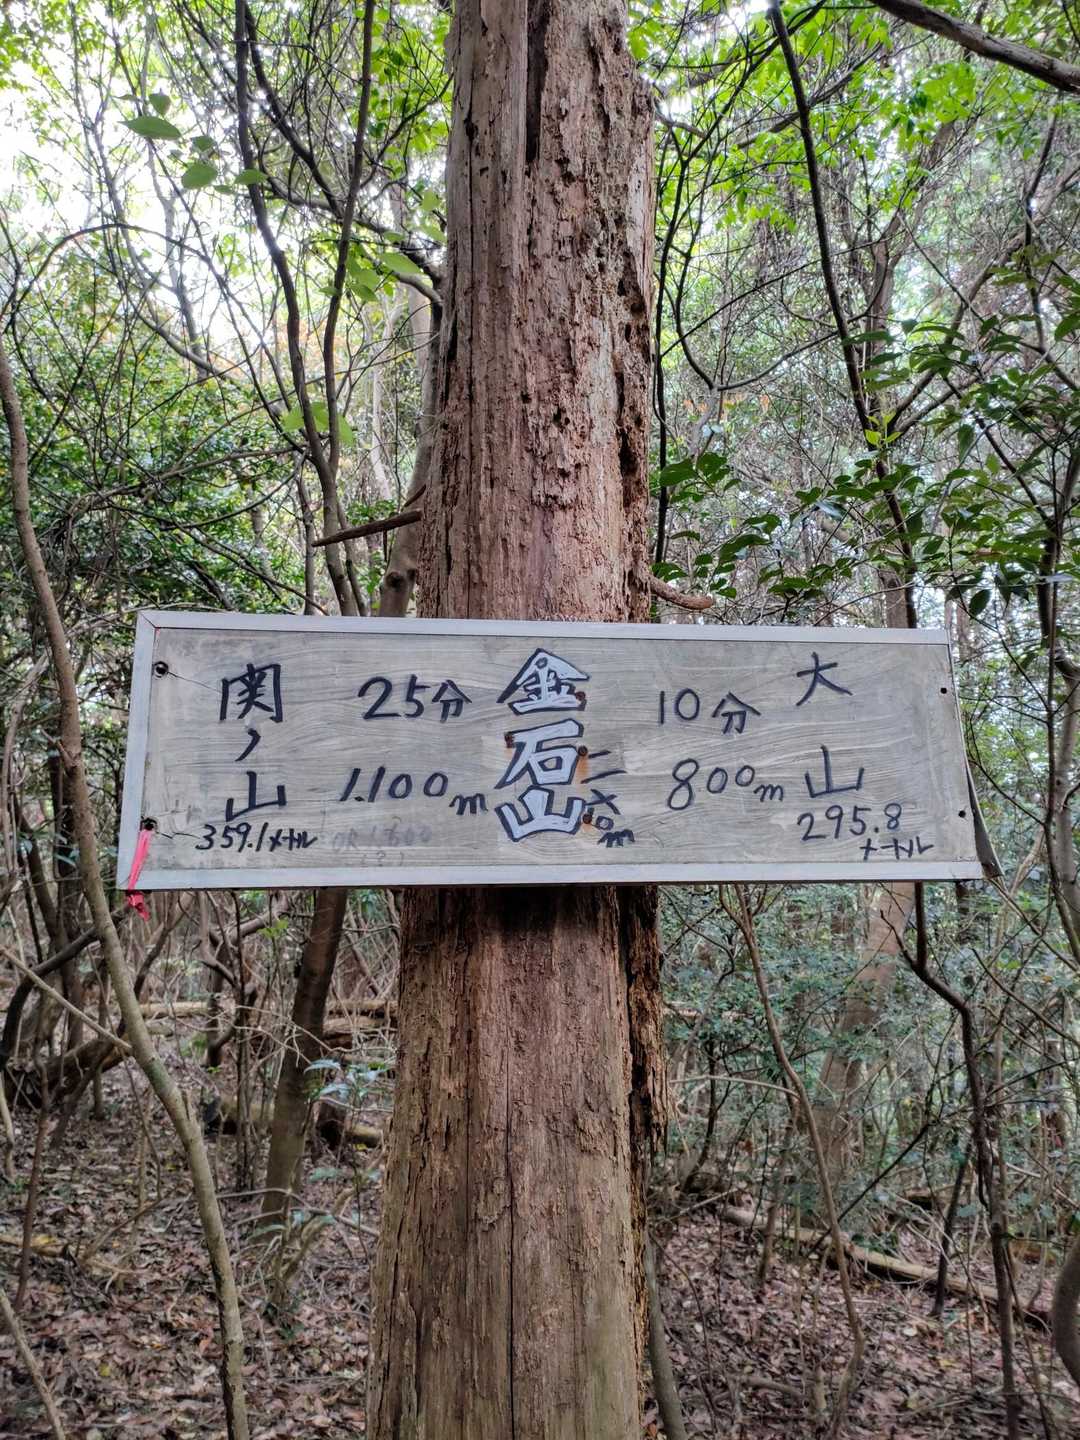 関ノ山
359.1メートル
25分
1.100m
OR 1,600
(?)
金石山
二六〇m
10分
800m
大山
295.8
メートル